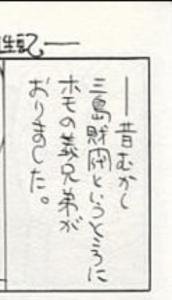 生記――
――昔むかし
三島財団というところに
ホモの義兄弟が
おりました。